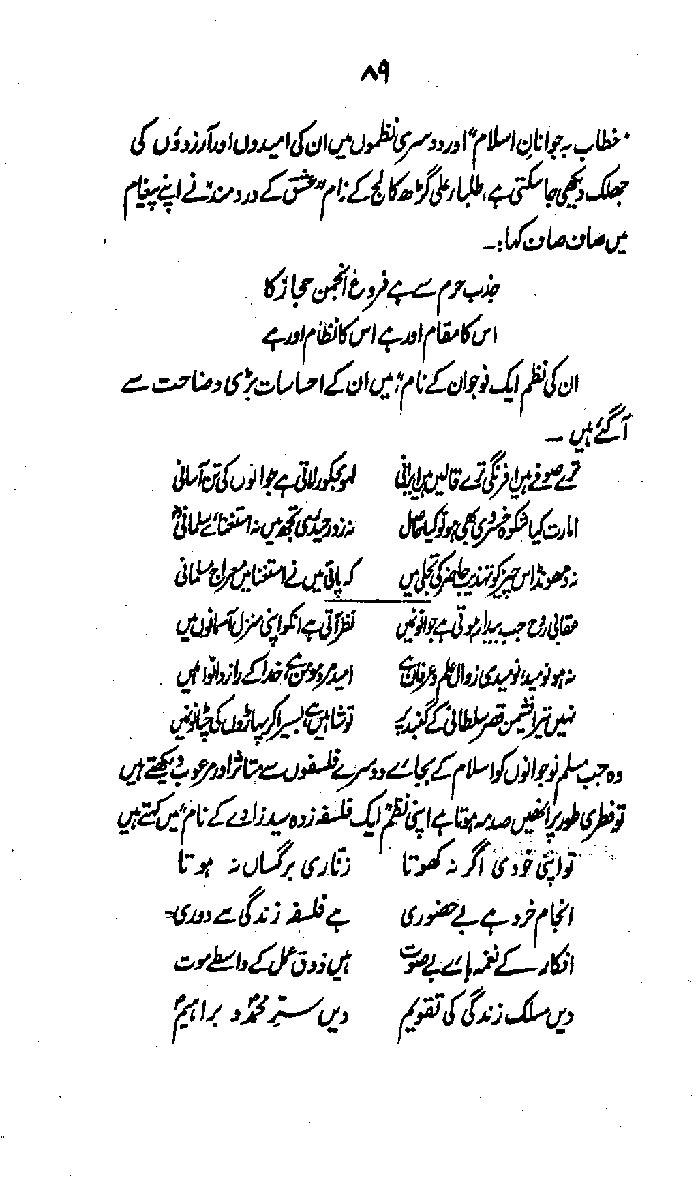 ۸۹
"خطاب بہ جوانانِ اسلام" اور دوسری نظموں میں ان کی امیدوں اور آرزوؤں کی
جھلک دیکھی جا سکتی ہے، طلبار علی گڑھ کالج کے نام "عشق کے دردمند" نے اپنے پیغام
میں صاف صاف کہا:۔
جذب حرم سے ہے فروغ انجمن حجاز کا
اس کا مقام اور ہے اس کا نظام اور ہے
ان کی نظم "ایک نوجوان کے نام" میں ان کے احساسات بڑی وضاحت سے
آگئے ہیں ۔
ترے صوفے ہیں افرنگی ترے قالیں ہیں ایرانی لہو مجکو رلاتی ہے جوانوں کی تن آسانی
امارت کیا شکوہ خسروی بھی ہو تو کیا حاصل نہ زور حیدری تجھ میں نہ استغنائے سلمانیؓ
نہ ڈھونڈ اس چیز کو تہذیب حاضر کی تجلی میں کہ پائی میں نے استغنا میں معراج مسلمانی
عقابی روح جب بیدار ہوتی ہے جوانوں میں نظر آتی ہے انکو اپنی منزل آسمانوں میں
نہ ہو نومید، نومیدی زوال علم و عرفاں ہے امید مرد مومن ہے خدا کے راز دانوں میں
نہیں تیرا نشیمن قصر سلطانی کے گنبد پر تو شاہیں ہے بسیرا کر پہاڑوں کی چٹانوں میں
وہ جب مسلم نوجوانوں کو اسلام کے بجائے دوسرے فلسفوں سے متاثر اور مرعوب دیکھتے ہیں
تو فطری طور پر انھیں صدمہ ہوتا ہے اپنی نظم "ایک فلسفہ زدہ سید زادے کے نام" میں کہتے ہیں
تو اپنی خودی اگر نہ کھوتا زناری برگساں نہ ہوتا
انجام خرد ہے بے حضوری ہے فلسفہ زندگی سے دوری
افکار کے نغمہ ہائے بے صوت ہیں ذوق عمل کے واسطے موت
دیں مسلک زندگی کی تقویم دیں سرِّ محمدؐ و براہیمؑ